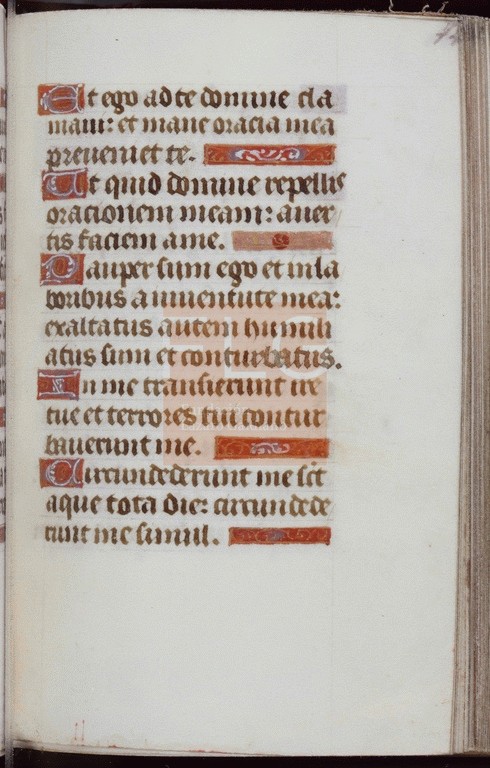 Et ego ad te domine cla
maui: et mane oracia mea
preueniet te.
Ut quid domine repellis
oracionem meam: auer
tis faciem a me.
Pauper sum ego et in la
boribus a iuuentute mea:
exaltatus autem humili
atus sum et conturbatus.
In me transierunt ire
tue et terrores tui contur
bauerunt me.
Circumdederunt me sict
aque tota die: circumdede
runt me simul.
FLG